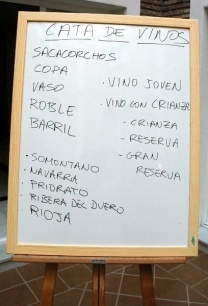 CATA DE VINOS
SACACORCHOS
COPA
VASO
ROBLE
BARRIL
· VINO JOVEN
· VINO CON CRIANZA
- CRIANZA
- RESERVA
- GRAN
RESERVA
· SOMONTANO
· NAVARRA
· PRIORATO
· RIBERA DEL DUERO
· RIOJA